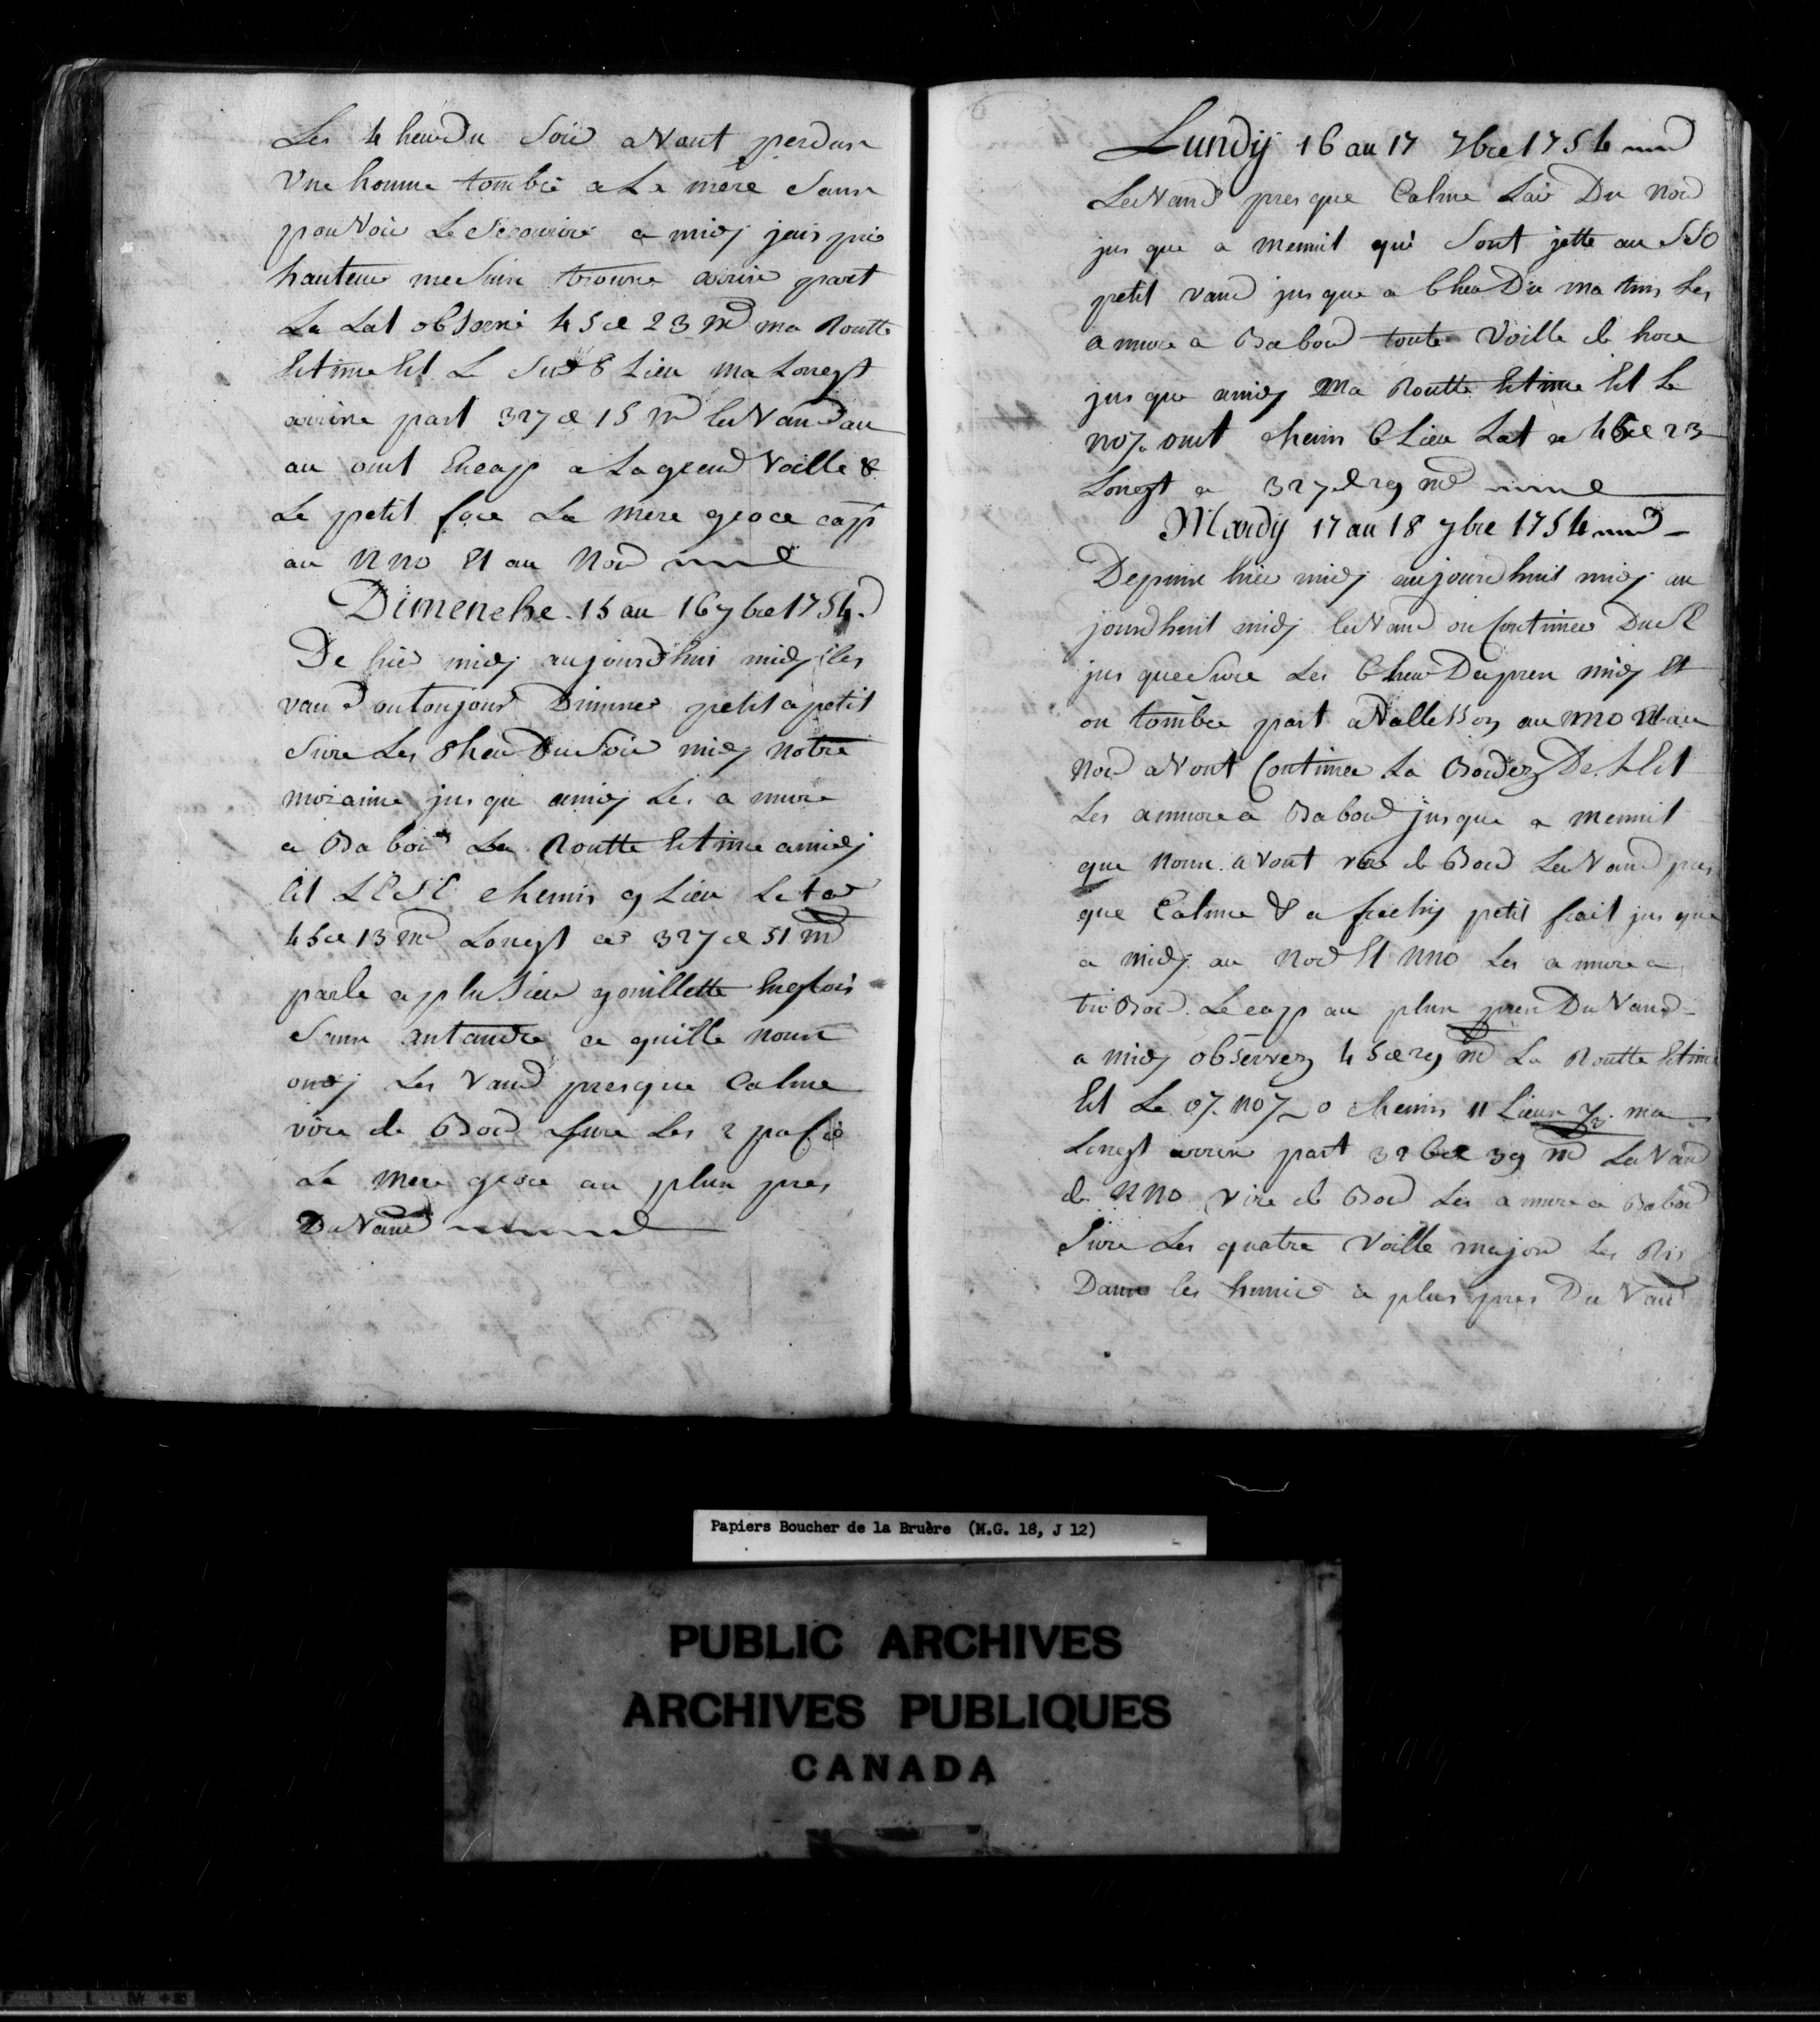 Les 4 heurDu Soir aVont perdus
Vne homme tombée a La mère Sans
pouVoir Le Secourire a midj jeais pris
hauteur me Suis trouve arrive part
La Lat observé 45 d 23 md ma Routte
Estime Est Le Sud 8 Lieu ma Longst
arrive part 327 d 15 md lesVand au
au ont Encap a La grend Voille &
Le petit foce La mere groce cap
au NNO Et au Nord
Dimenche 15 au 16 7bre 1754
De hier midj aujourd'hui midj les
vand on toujours Diminue petit a petit
Sure Les 8 heur Du Soir midj notre
mozaine jusqu amidj Les a mure
a Babord La Routte Estime amidj
Est LESE chemin 9 Lieu Le tad
45 d 13 md Longst ar 327 d 51 md
parle a plusieur gouillette Englois
Sans antandre ce quille nous
ondj Les Vand presque Calme
vire de Bord sure Les 2 passé
La mere groce au plus pres
Du Vand
Lundij 16 au 17 7bre 1754
LesVand presque Calme Lair Du nord
jusque a menuit qui Sont jette au SSO
petit vand jusque a 6 heu Du matins Les
amure a Babord toute Voille de hore
jusque amidj Ma Routte Estime Est Le
no7. ont chemin 6 Lieu Lat a 45 d 23
Longst a 327 d 29 md
Mardij 17 au 18 7bre 1754
Depuis hier midj aujourdhuit midj au
jourdhuit midj lesVand on Continuer DuSE
jusqueSure Les 6 heur Daprest midj Et
on tombée part aVallesson au NNO Et au
Nord aVont Continuer La Bordez De LEst
Les amure a Babord jusque a menuit
que nous aVont vire de Bord LesVand pres
que Calme & a frechij petit frait jusque
a midj au Nord Et NNO Les amure a
triBord Le cap au plus pres Du Vand
a midj observez 45 d 29 md La Routte Estime
Est Le 07. no7. 0 chemin 11 Lieux ⅔ ma
Longst arrive part 326 d 39 md LesVand
de NNO vire de Bord Les amure a Babord
Sure Les quatre Voille majord Les Ris
Dans les hunier a plus pres Du Vand
Papiers Boucher de la Bruère (M.G. 18, J 12)
PUBLIC ARCHIVES
ARCHIVES PUBLIQUES
CANADA